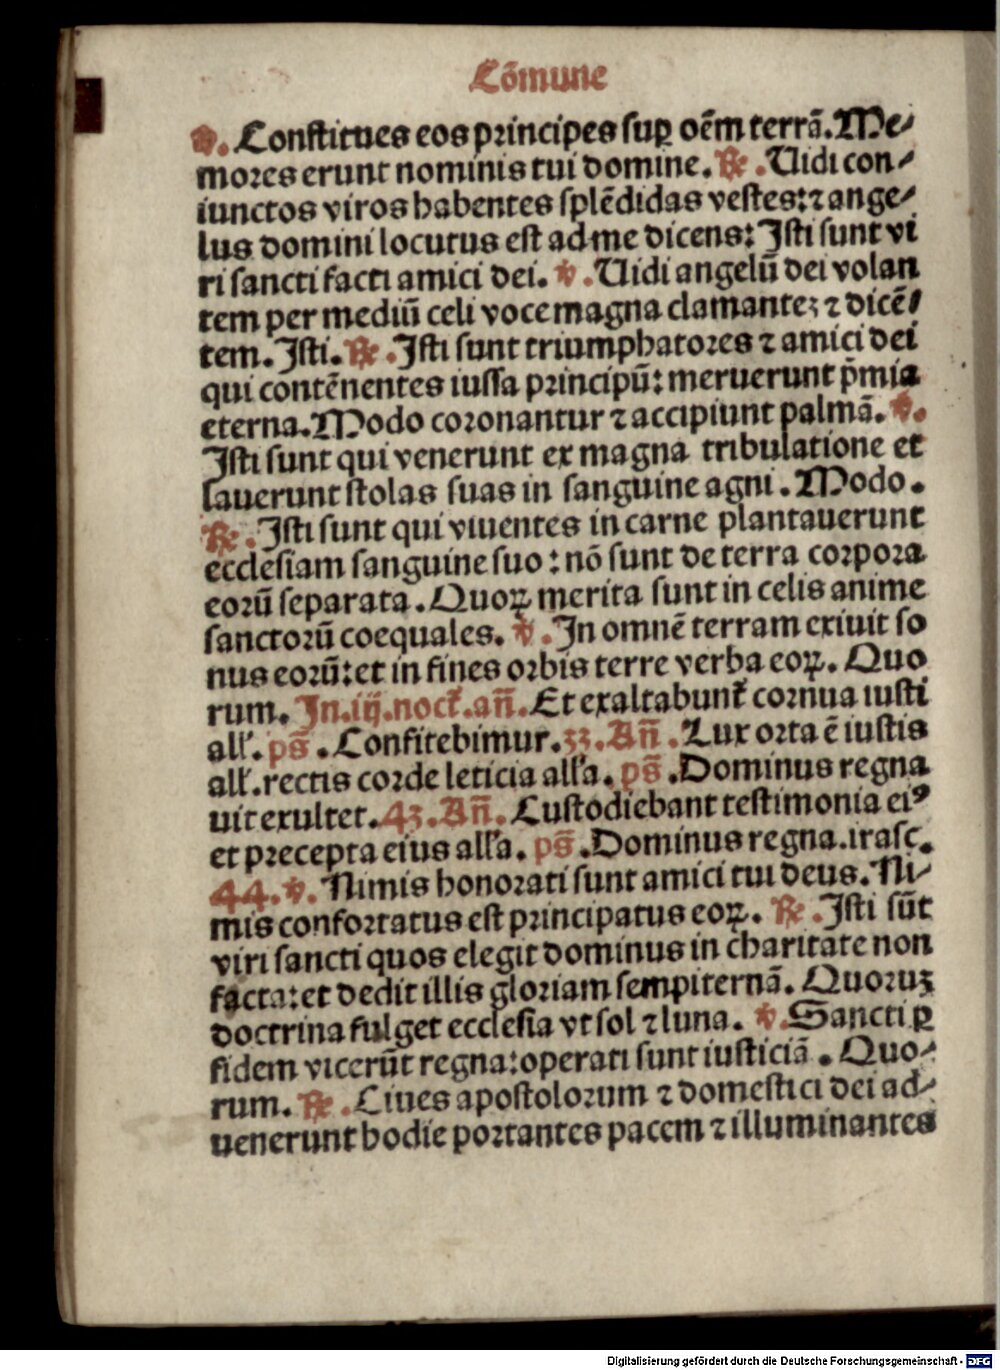 Cōmune
℣. Constitues eos principes suꝑ oēm terrā. Me⸗
mores erunt nominis tui domine. ℟. Uidi con⸗
iunctos viros habentes splēdidas vestes: ⁊ ange⸗
lus domini locutus est ad me dicens: Isti sunt vi
ri sancti facti amici dei. ℣. Uidi angelū dei volan
tem per mediū celi voce magna clamanteꝫ ⁊ dicē⸗
tem. Isti. ℟. Isti sunt triumphatores ⁊ amici dei
qui contēnentes iussa principū: meruerunt p̄mia
eterna. Modo coronantur ⁊ accipiunt palmā. ℣.
Isti sunt qui venerunt ex magna tribulatione et
lauerunt stolas suas in sanguine agni. Modo.
℟. Isti sunt qui viuentes in carne plantauerunt
ecclesiam sanguine suo: nō sunt de terra corpora
eorū separata. Quoꝝ merita sunt in celis anime
sanctorū coequales. ℣. In omnē terram exiuit so
nus eorū: et in fines orbis terre verba eoꝝ. Quo
rum. In. iij. noct̄. an̄. Et exaltabunt̄ cornua iusti
all'. ps̄. Confitebimur. 33. An̄. Lux orta ē iustis
all'. rectis corde leticia all'a. ps̄. Dominus regna
uit exultet. 43. An̄. Custodiebant testimonia eiꝰ
et precepta eius all'a. ps̄. Dominus regna. irasc.
44. ℣. Nimis honorati sunt amici tui deus. Ni⸗
mis confortatus est principatus eoꝝ. ℟. Isti sūt
viri sancti quos elegit dominus in charitate non
facta: et dedit illis gloriam sempiternā. Quoruꝫ
doctrina fulget ecclesia vt sol ⁊ luna. ℣. Sancti ꝑ
fidem vicerūt regna: operati sunt iusticiā. Quo⸗
rum. ℟. Ciues apostolorum ⁊ domestici dei ad⸗
uenerunt hodie portantes pacem ⁊ illuminantes
Digitalisierung gefördert durch die Deutsche Forschungsgemeinschaft - DFG